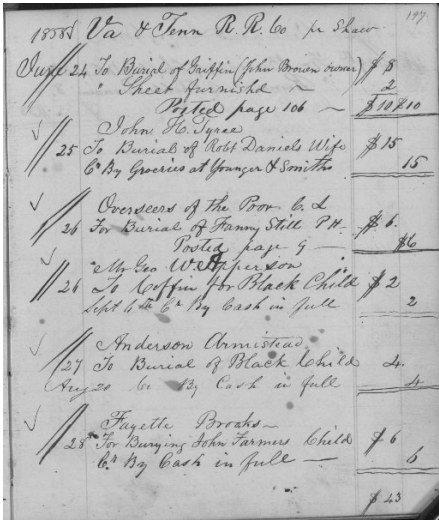 197
1858 Va & Tenn R. R. Co pr Shaw
June 24 To Burial of Griffin (John Brown owner) $8
" Sheet furnishd 2
Posted page 106 — $10 $10
John H. Tyree
25 To Burial of Robt Daniels Wife $15
Cr By Groceries at Younger & Smiths 15
Overseers of the Poor C. L
26 For Burial of Fanny Still P. H. $6.
Posted page 9 — $6
Mr Geo W. Apperson
26 To Coffin for Black Child $2
Sept 6th Cr By Cash in full 2
Anderson Armistead
27 To Burial of Black Child 4
Aug 20 Cr By Cash in full 4
Fayette Brooks —
28th For Burying John Farmers Child $6
Cr By Cash in full — 6
$43